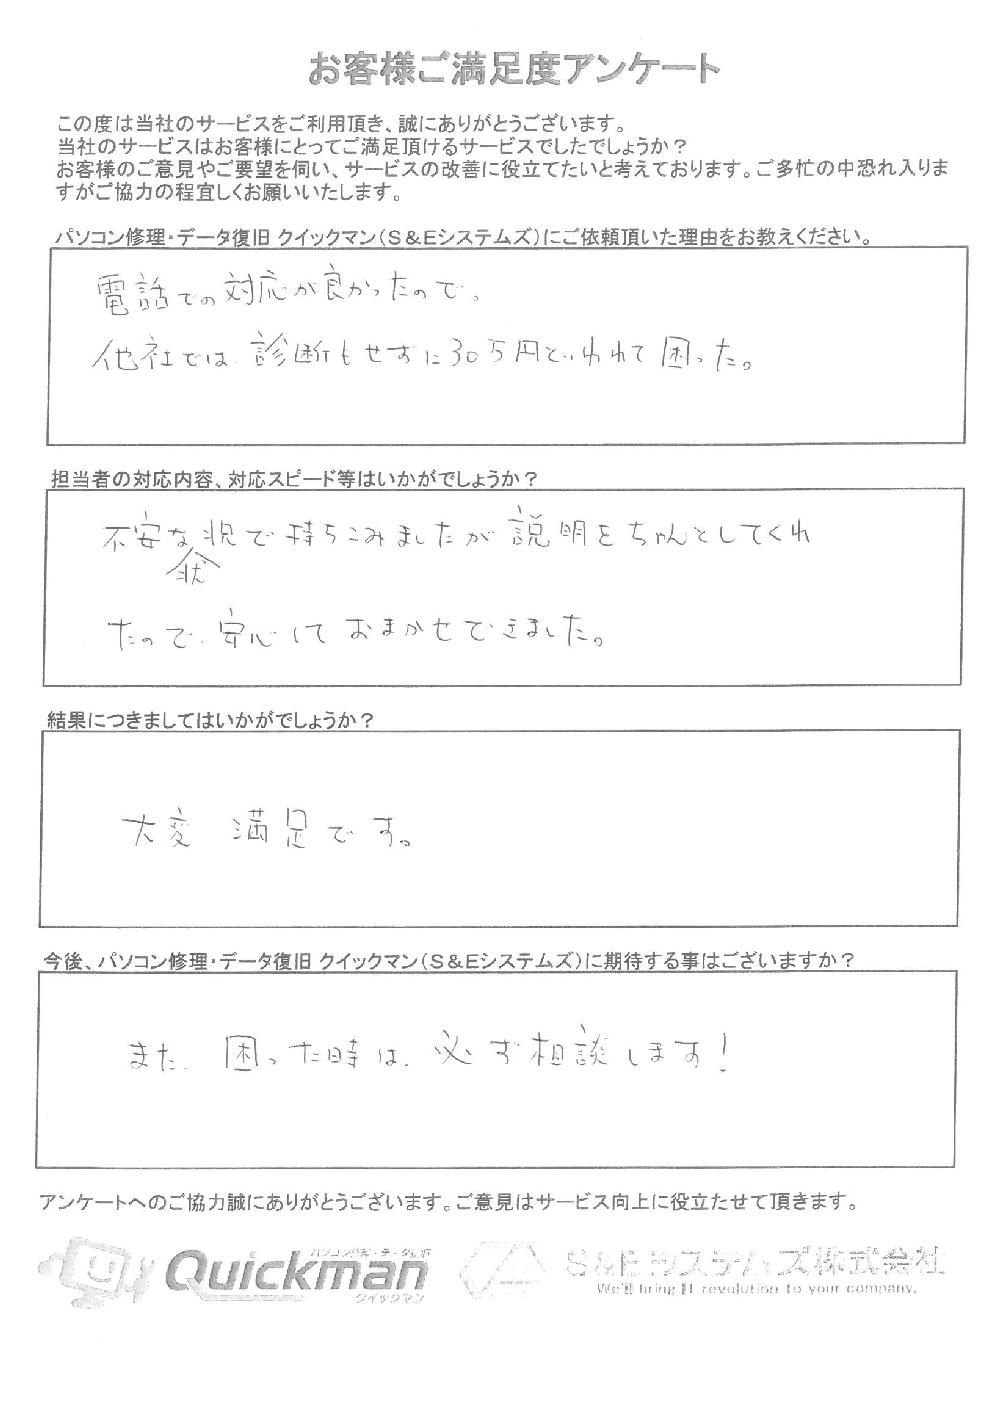 お客様ご満足度アンケート
この度は当社のサービスをご利用頂き、誠にありがとうございます。
当社のサービスはお客様にとってご満足頂けるサービスでしたでしょうか？
お客様のご意見やご要望を伺い、サービスの改善に役立てたいと考えております。ご多忙の中恐れ入りま
すがご協力の程宜しくお願いいたします。
パソコン修理・データ復旧 クイックマン（Ｓ＆Ｅシステムズ）にご依頼頂いた理由をお教えください。
電話での対応が良かったので。
他社では、診断もせずに30万円といわれて困った。
担当者の対応内容、対応スピード等はいかがでしょうか？
不安な状況で持ちこみましたが説明をちゃんとしてくれ
たので、安心しておまかせできました。
結果につきましてはいかがでしょうか？
大変 満足です。
今後、パソコン修理・データ復旧 クイックマン（Ｓ＆Ｅシステムズ）に期待する事はございますか？
また、困った時は、必ず相談します！
アンケートへのご協力誠にありがとうございます。ご意見はサービス向上に役立たせて頂きます。
パソコン修理・データ復旧
Quickman
クイックマン
S&Eシステムズ株式会社
We'll bring IT revolution to your company.